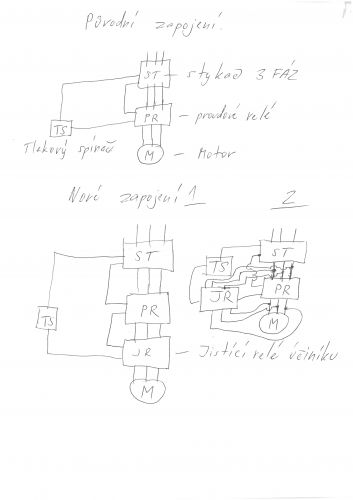 Původní zapojení.
ST - stykač 3 FÁZ
TS
PR - proudové relé
Tlakový spínač
M - Motor
Nové zapojení 1
2
ST
ST
TS
JŘ
PR
PR
TS
M
JR - Jistící relé účiníku
M